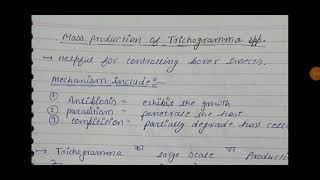 Mass production of Trichogramma spp.
→ helpful for controlling borer insects.
Mechanism include:
① Antibiosis = exhibit the growth
② parasitism = penetrate the host
③ competition = partially degrade host cell
→ Trichogramma का large scale पर production